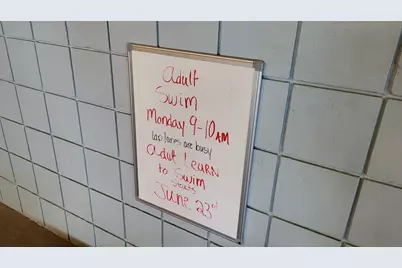 Adult
Swim
Monday 9-10AM
Lap lanes are busy
Adult LEARN
to Swim
Starts
June 23rd